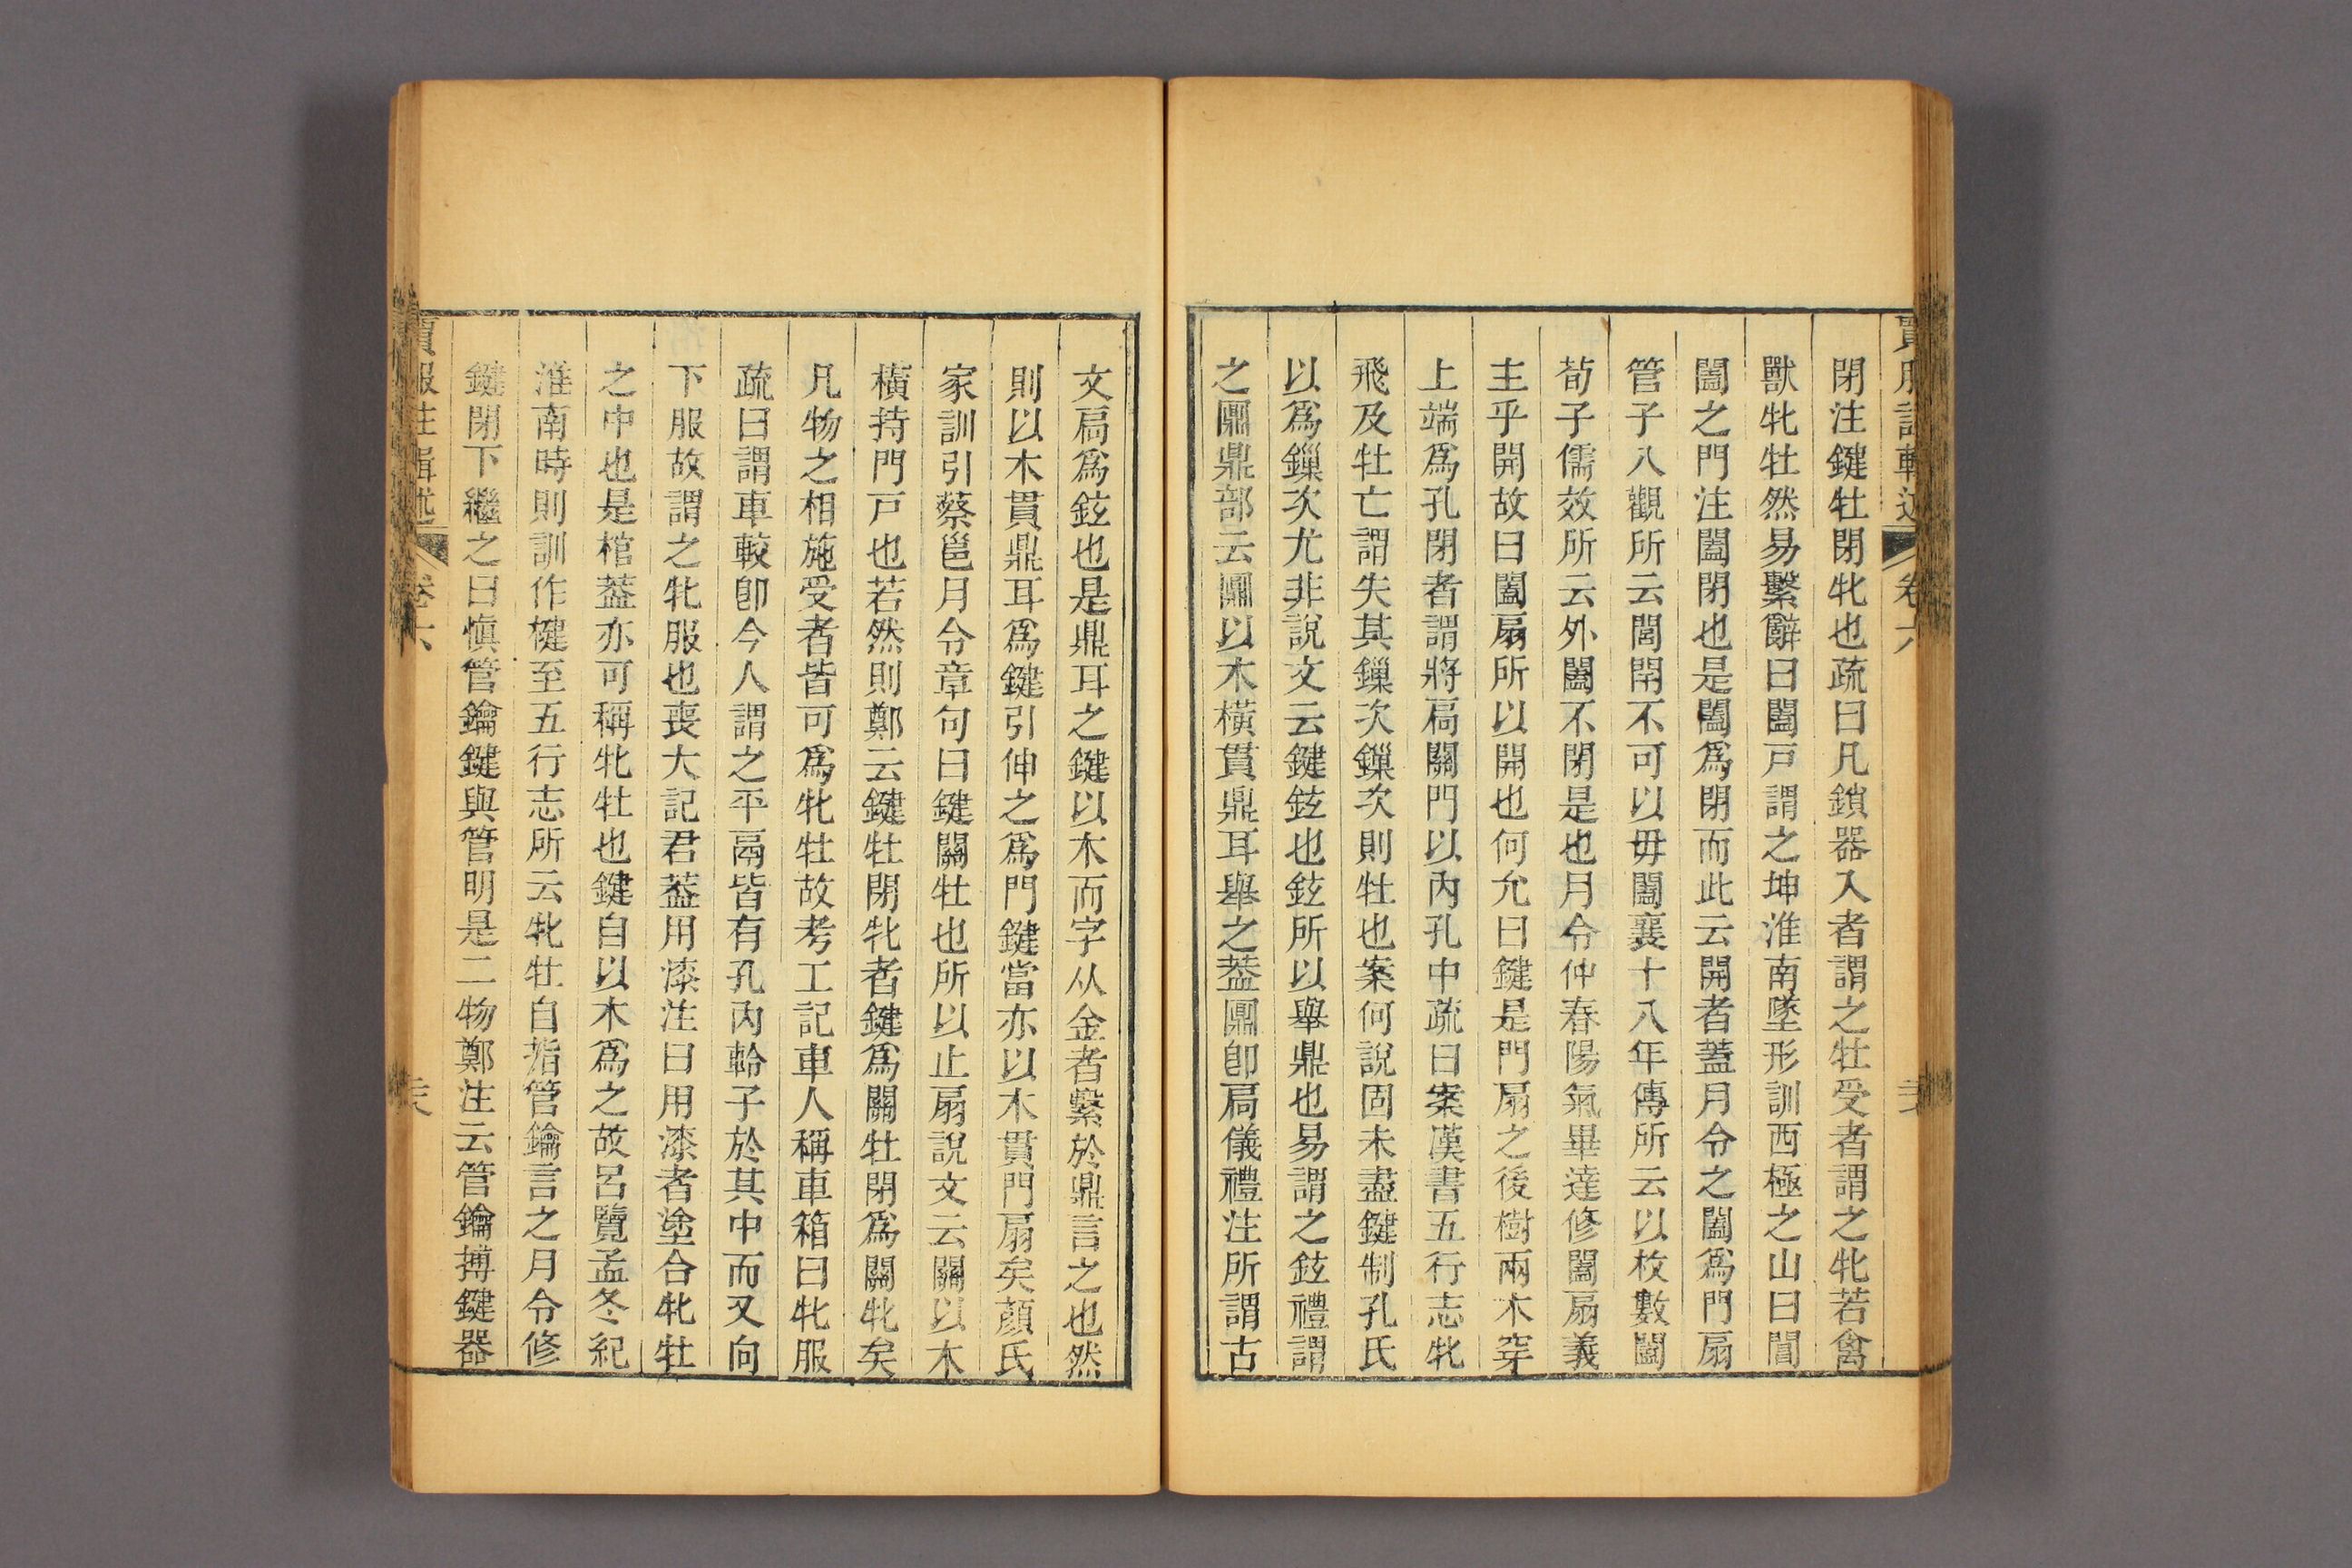 賈服注輯述 卷六
閉注鍵牡閉牝也疏曰凡鎖器入者謂之牡受者謂之牝若禽
獸牝牡然易繫辭曰闔戸謂之坤淮南墜形訓西極之山曰閶
闔之門注闔閉也是闔爲閉而此云開者蓋月令之闔爲門扇
管子八觀所云閭閈不可以毋闔襄十八年傳所云以枚數闔
荀子儒效所云外闔不閉是也月令仲春陽氣畢達修闔扇義
主乎開故曰闔扇所以開也何允曰鍵是門扇之後樹兩木穿
上端爲孔閉者謂將扃關門以內孔中疏曰案漢書五行志牝
飛及牡亡謂失其鏁次鏁次則牡也案何說固未盡鍵制孔氏
以爲鏁次尤非說文云鍵鉉也鉉所以舉鼎也易謂之鉉禮謂
之鼏鼎部云鼏以木橫貫鼎耳舉之葢鼏卽扃儀禮注所謂古
文扃爲鉉也是鼎耳之鍵以木而字从金者繫於鼎言之也然
則以木貫鼎耳爲鍵引伸之爲門鍵當亦以木貫門扇矣顏氏
家訓引蔡邕月令章句曰鍵關牡也所以止扇說文云關以木
橫持門戸也若然則鄭云鍵牡閉牝者鍵爲關牡閉爲關牝矣
凡物之相施受者皆可爲牝牡故考工記車人稱車箱曰牝服
疏曰謂車較卽今人謂之平鬲皆有孔內軨子於其中而又向
下服故謂之牝服也喪大記君葢用漆注曰用漆者塗合牝牡
之中也是棺葢亦可稱牝牡也鍵自以木爲之故呂覽孟冬紀
淮南時則訓作楗至五行志所云牝牡自指管鑰言之月令修
鍵閉下繼之曰愼管鑰鍵與管明是二物鄭注云管鑰搏鍵器
賈服注輯述 卷六